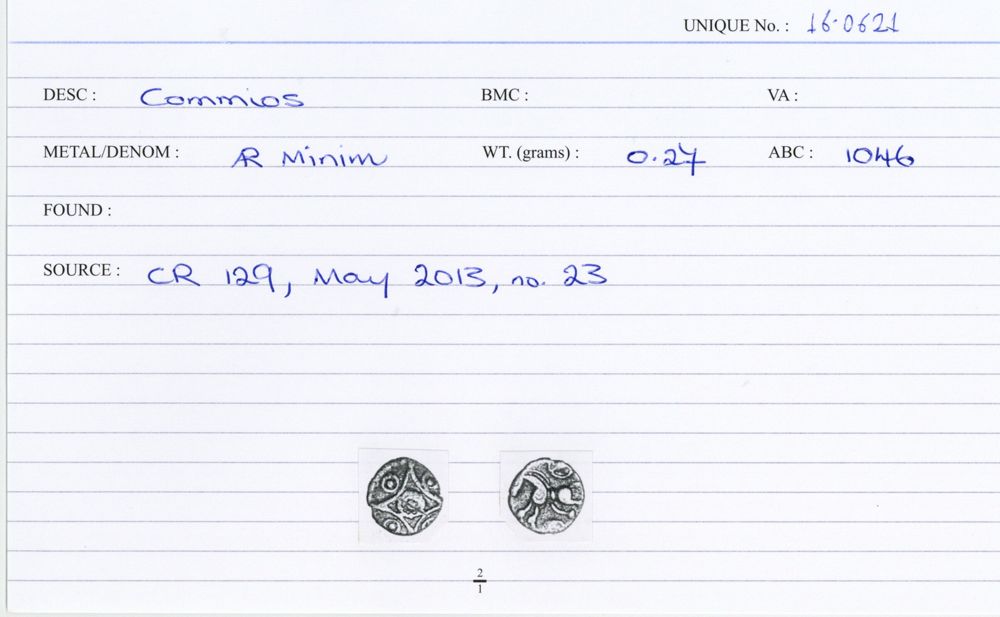 UNIQUE No. : 16-0621
DESC : Commios BMC : VA :
METAL/DENOM : AR Minim WT. (grams) : 0.27 ABC : 1046
FOUND :
SOURCE : CR 129, May 2013, no. 23
2
1